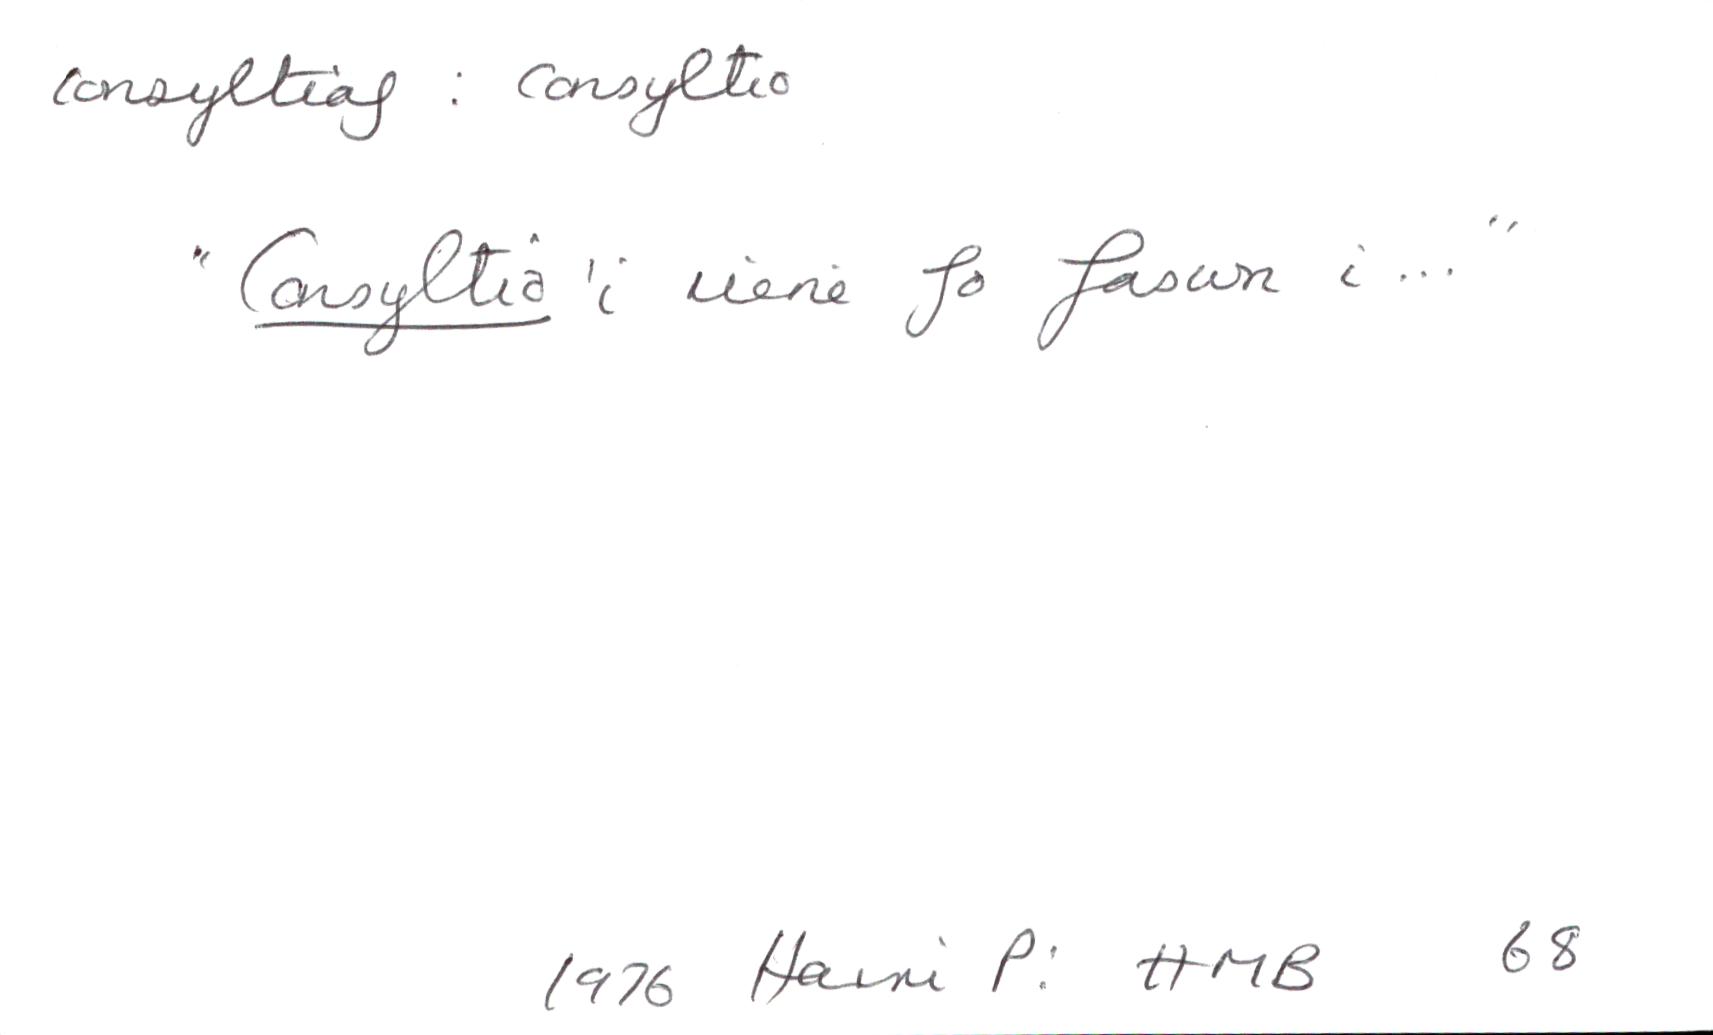 consyltiaf : consyltio
"Consyltio 'i rieni fo faswn i ..."
1976 Harri P: HMB 68